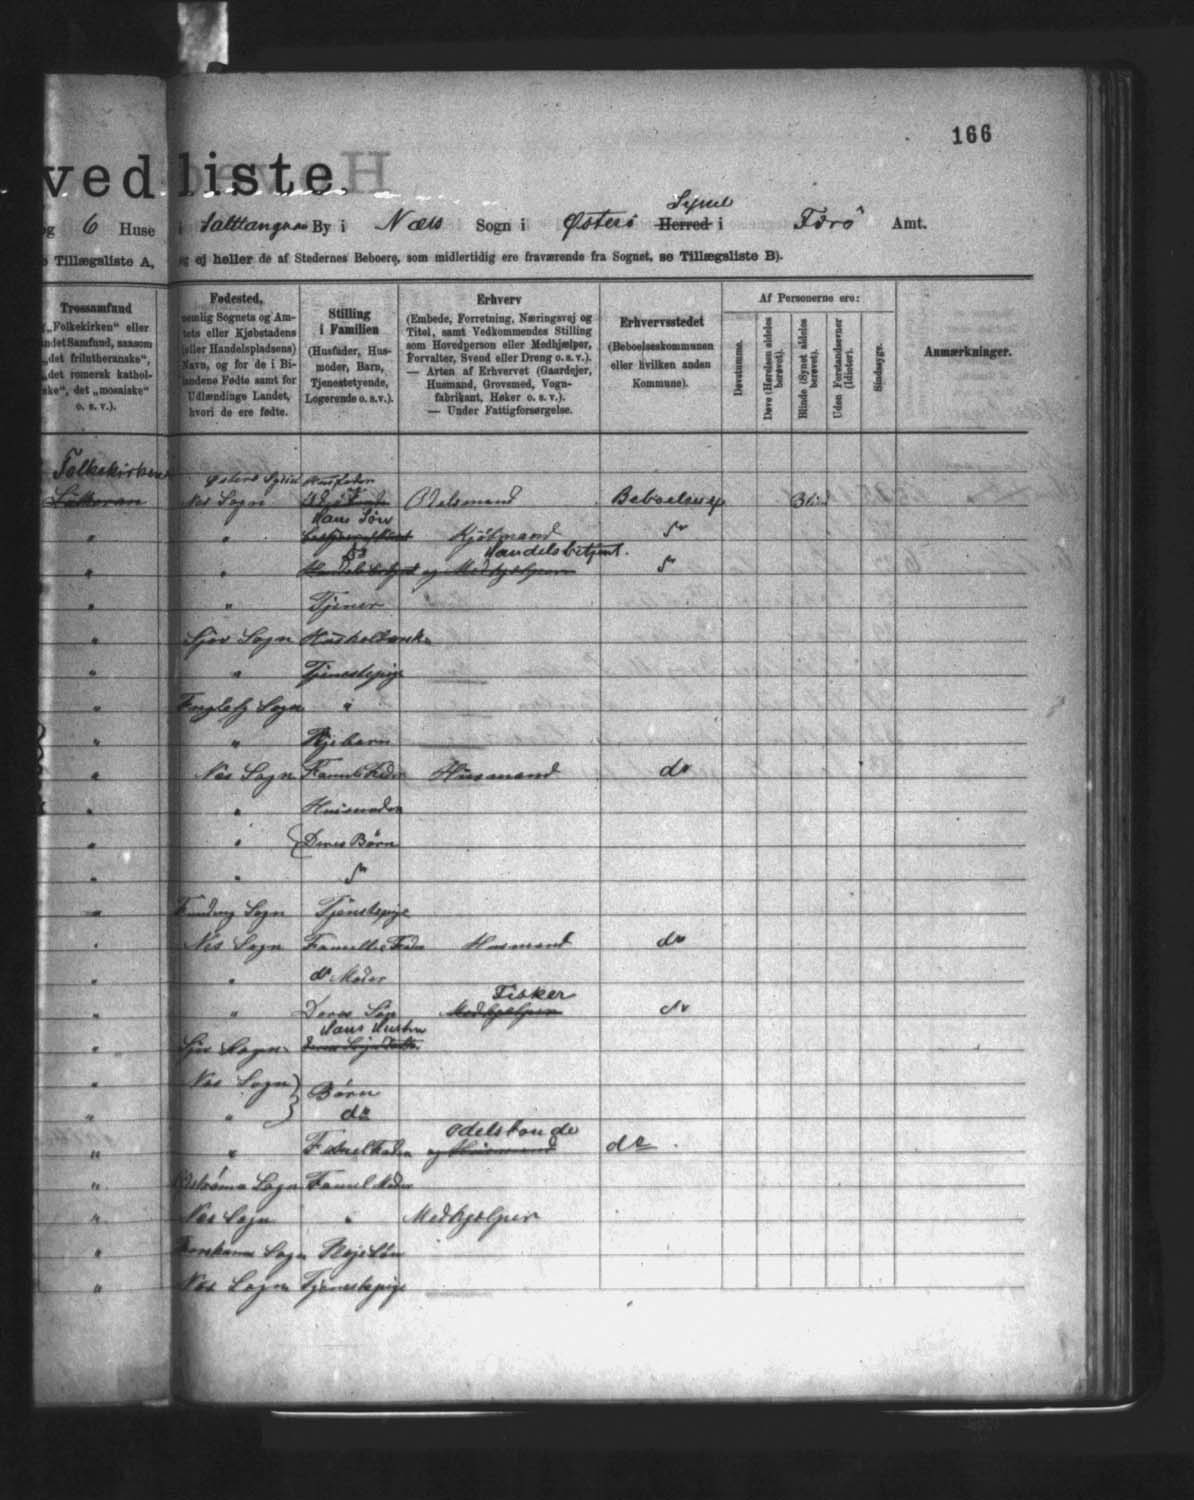 166
vedliste,
og 6 Huse i Salttangnes By i Næs Sogn i Østerø Herred i Syssel Færø Amt.
Tillægsliste A, og ej heller de af Stedernes Beboere, som midlertidig ere fraværende fra Sognet, se Tillægsliste B).
Trossamfund
„Folkekirken“ eller
andet Samfund, saasom
„det frilutheranske“,
„det romersk kathol-
ske“, det „mosaiske“
o. s. v.).
Fødested,
nemlig Sognets og Am-
tets eller Kjøbstadens
(eller Handelspladsens)
Navn, og for de i Bi-
landene Fødte samt for
Udlændinge Landet,
hvori de ere fødte.
Stilling
i Familien
(Husfader, Hus-
moder, Barn,
Tjenestetyende,
Logerende o. s. v.).
Erhverv
(Embede, Forretning, Næringsvej og
Titel, samt Vedkommendes Stilling
som Hovedperson eller Medhjælper,
Forvalter, Svend eller Dreng o. s. v.).
— Arten af Erhvervet (Gaardejer,
Husmand, Grovsmed, Vogn-
fabrikant, Høker o. s. v.).
— Under Fattigforsørgelse.
Erhvervsstedet
(Beboelseskommunen
eller hvilken anden
Kommune).
Af Personerne ere:
Døvstumme.
Døve (Hørelsen aldeles
berøvet).
Blinde (Synet aldeles
berøvet).
Uden Forstandsevner
(Idioter).
Sindssyge.
Anmærkninger.
Folkekirken
Østerø Syssel Husfader
Lutheran Næs Sogn Odelsmand Beboelses Blind
Hans Søn
" " Kjøbmand do
do Handelsbetjent.
" " og Medhjælper do
" " Tjener
" Sjov Sogn Husholderske
" " Tjenestepige
" Fuglefj Sogn "
" " Plejebarn
" Næs Sogn Familiefader Husmand do
" " Husmoder
" " Deres Børn
" " do
" Funding Sogn Tjenestepige
" Næs Sogn Familiefader Husmand do
" " do Moder
Fisker
" " Deres Søn Medhjælper do
Hans Hustru
" Sjov Sogn
" Næs Sogn Børn
" " do
Odelsbonde
" " Familfader og Husmand do
" Sogn Familmoder
" Næs Sogn " Medhjælper
" Sogn Plejesøn
" Næs Sogn Tjenestepige